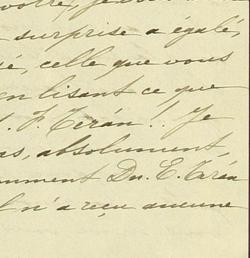 surprise a égalé,
celle que vous
en lisant ce que
F. Terán!! Je
as, absolument,
mment Dn. E. Terán
l n'a reçu aucune